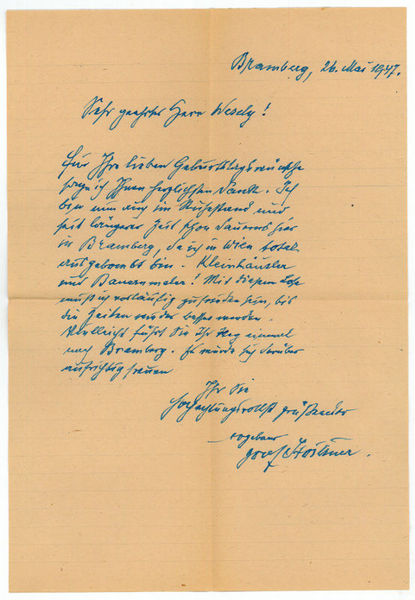 Bramberg, 26. Mai 1947.
Sehr geehrter Herr Wesely!
Für Ihre lieben Geburtstagswünsche
sage ich Ihnen herzlichsten Dank. Ich
bin nun auch im Ruhestand und
seit längerer Zeit schon dauernd hier
in Bramberg, da ich in Wien total
ausgebombt bin. Kleinhäusler
und Bauernmaler! Mit diesem Lose
muß ich vorläufig zufrieden sein, bis
die Zeiten wieder besser werden.
Vielleicht führt Sie Ihr Weg einmal
nach Bramberg. Es würde sich darüber
aufrichtig freuen
Ihr Sie
hochachtungsvollst grüßender
ergebener
Josef